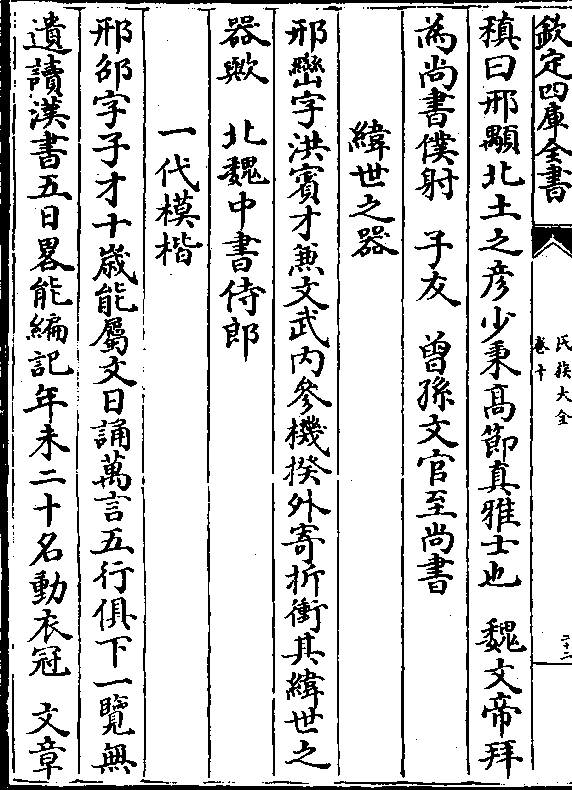 欽定四庫全書
氏族大全
卷十
二十二
稹曰邢顒北土之彦少秉髙節真雅士也　魏文帝拜
為尚書僕射　子友　曾孫文官至尚書
緯世之器
邢巒字洪賓才兼文武内參機揆外寄折衝其緯世之
器歟　北魏中書侍郎
一代模楷
邢邵字子才十歲能屬文日誦萬言五行俱下一覽無
遺讀漢書五日畧能編記年未二十名動衣冠　文章